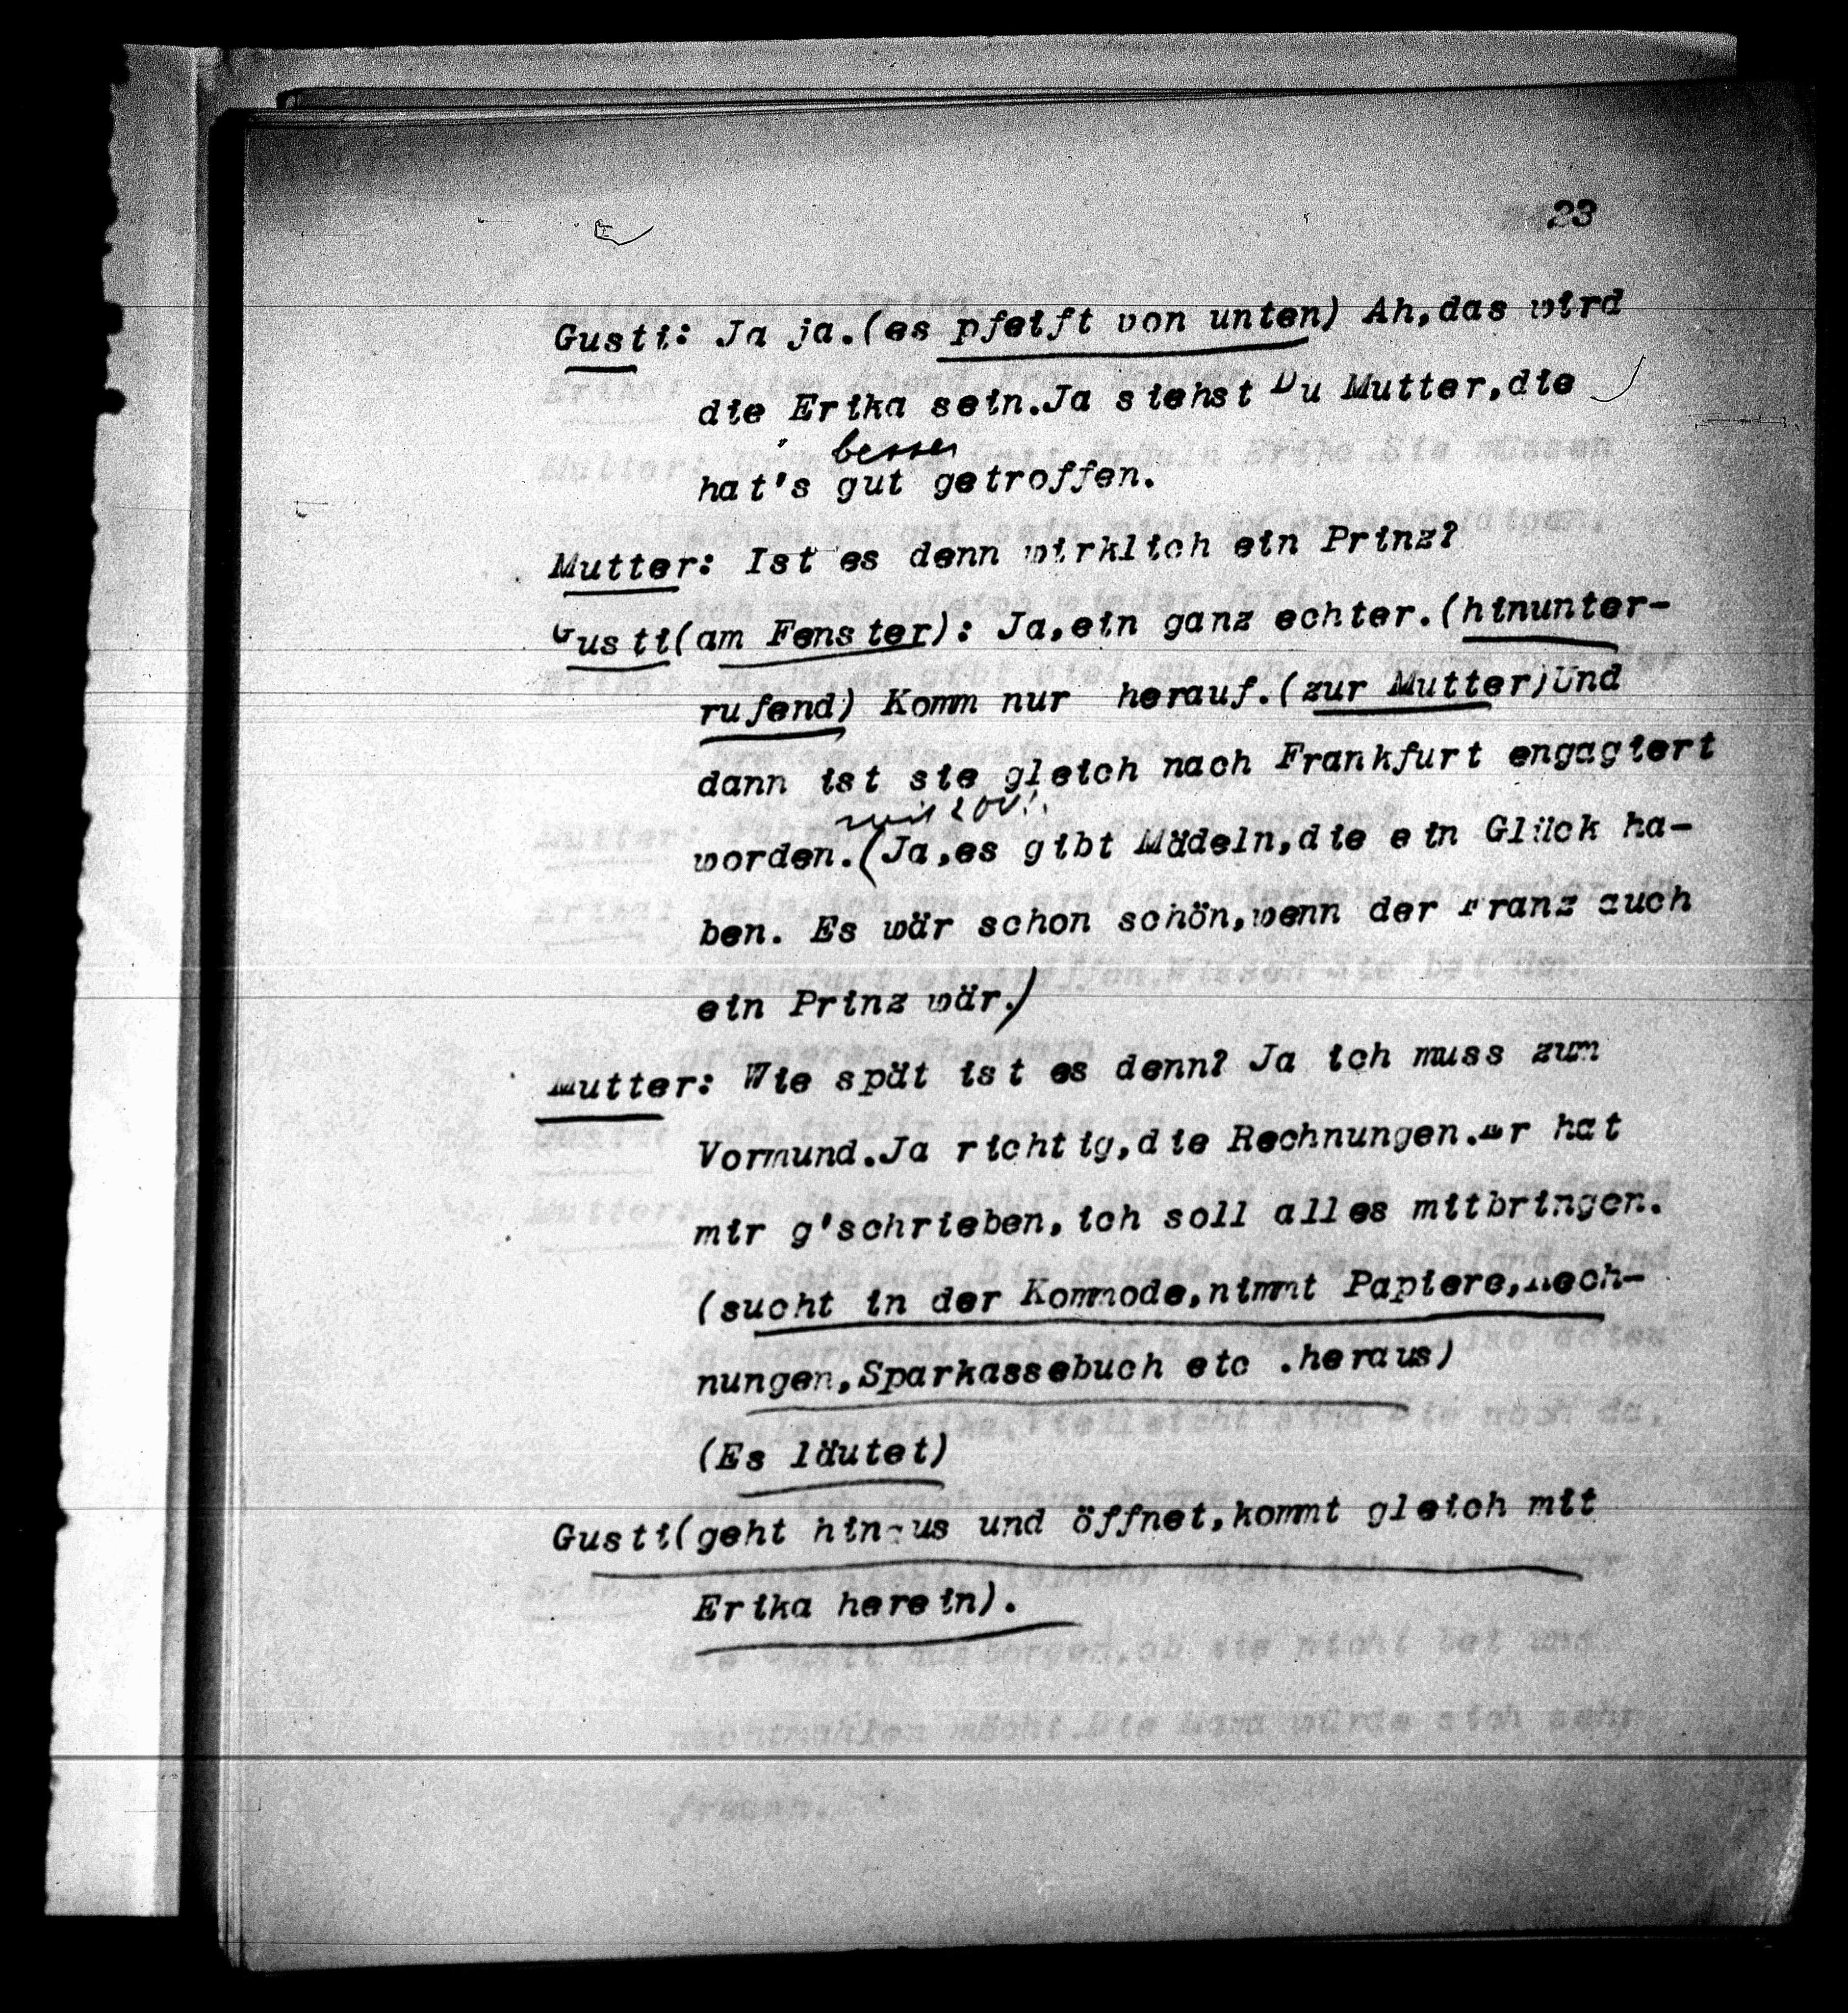 23
Gusti: Ja ja.(es pfeift von unten) Ah,das wird
die Erika sein.Ja siehst Du Mutter,die
besser
hat's gut getroffen.
Mutter: Ist es denn wirklich ein Prinz?
Gusti(am Fenster): Ja,ein ganz echter.(hinunter-
rufend) Komm nur herauf.(zur Mutter)Und
dann ist sie gleich nach Frankfurt engagiert
worden.(Ja,es gibt Mädeln,die ein Glück ha-
ben. Es wär schon schön,wenn der Franz auch
ein Prinz wär.)
Mutter: Wie spät ist es denn? Ja ich muss zum
Vormund.Ja richtig,die Rechnungen.Er hat
mir g'schrieben,ich soll alles mitbringen.
(sucht in der Kommode,nimmt Papiere,Rech-
nungen,Sparkassebuch etc .heraus)
(Es läutet)
Gusti(geht hinaus und öffnet,kommt gleich mit
Erika herein).